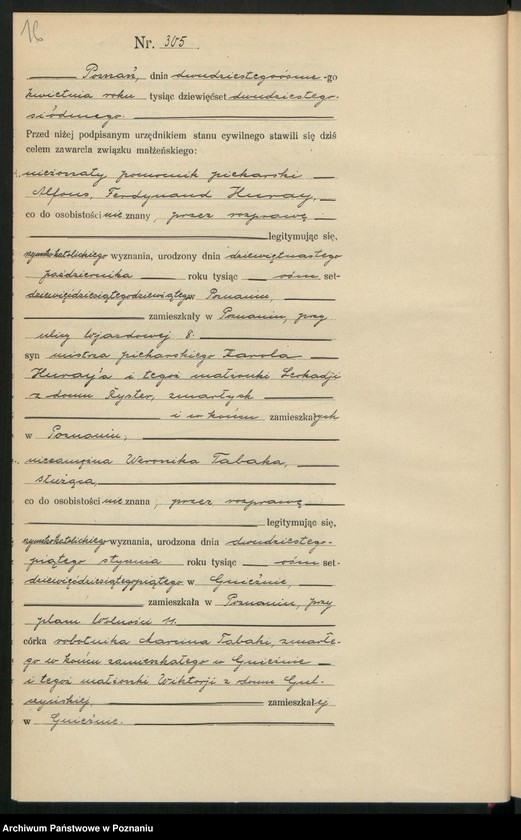 16
Nr. 305
Poznań, dnia dwudziestegoósme -go
kwietnia roku tysiąc dziewięćset dwudziestego-
siódmego.
Przed niżej podpisanym urzędnikiem stanu cywilnego stawili się dziś
celem zawarcia związku małżeńskiego:
nieżonaty pomocnik piekarski
Alfons, Ferdynand Huray,
co do osobistości nie znany, przez rozprawę
legitymując się,
rzymskokatolickiego wyznania, urodzony dnia dziewiętnastego
października roku tysiąc ośm set-
dziewięćdziesiątegodziewiątego w Poznaniu,
zamieszkały w Poznaniu, przy
ulicy Wjazdowej 8.
syn mistrza piekarskiego Karola
Huray'a i tegoż małżonki Leokadji
z domu Kyster, zmarłych
i w końcu zamieszkałych
w Poznaniu,
niezamężna Weronika Tabaka,
służąca,
co do osobistości nie znana, przez rozprawę
legitymując się,
rzymskokatolickiego wyznania, urodzona dnia dwudziestego-
piątego stycznia roku tysiąc ośm set-
dziewięćdziesiątegopiątego w Gnieźnie,
zamieszkała w Poznaniu, przy
placu Wolności 11.
córka robotnika Marcina Tabaki, zmarłe-
go w końcu zamieszkałego w Gnieźnie
i tegoż małżonki Wiktorji z domu Gul-
czyńskiej, zamieszkałej
w Gnieźnie.
Archiwum Państwowe w Poznaniu